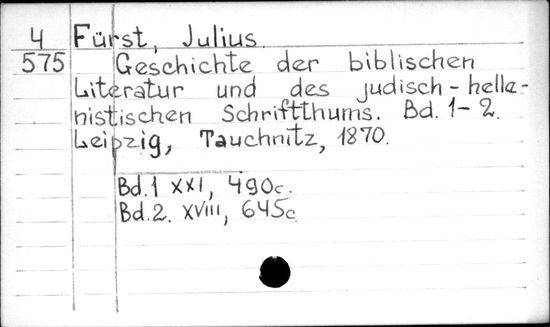 4 Fürst, Julius.
575 Geschichte der biblischen
Literatur und des judisch-helle-
nistischen Schriftthums. Bd. 1-2.
Leipzig, Tauchnitz, 1870.
Bd.1 XXI, 490c.
Bd.2. XVIII, 645c